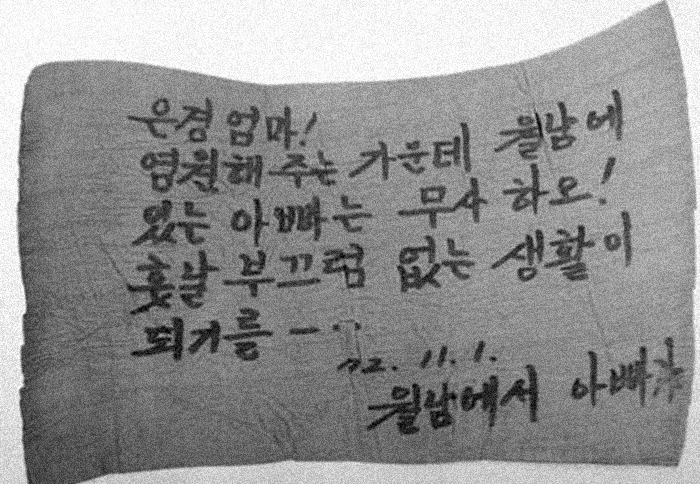 은경 엄마!
염원해 주는 가운데 월남에
있는 아빠는 무사 하오!
훗날 부끄럼 없는 생활이
되기를 ㅡ..
72. 11. 1.
월남에서 아빠가